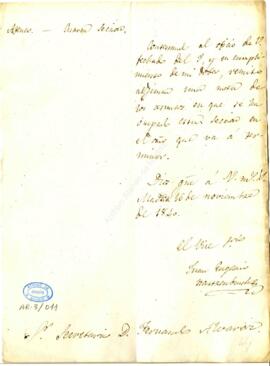 Ateneo. — Cuarta Sección.
Consecuente al oficio de V.
fechado del 9, y en cumpli-
miento de mi deber, remito
adjunta una nota de
los asuntos en que se ha
ocupado esta sección en
el año que va a ter-
minar.
Dios gue á V. m. a.
Madrid 16 de noviembre
de 1840.
El Vice
Juan Eugenio
Hartzenbusch
AR-8/011
Sr. Secretario D. Fernando Alvarez